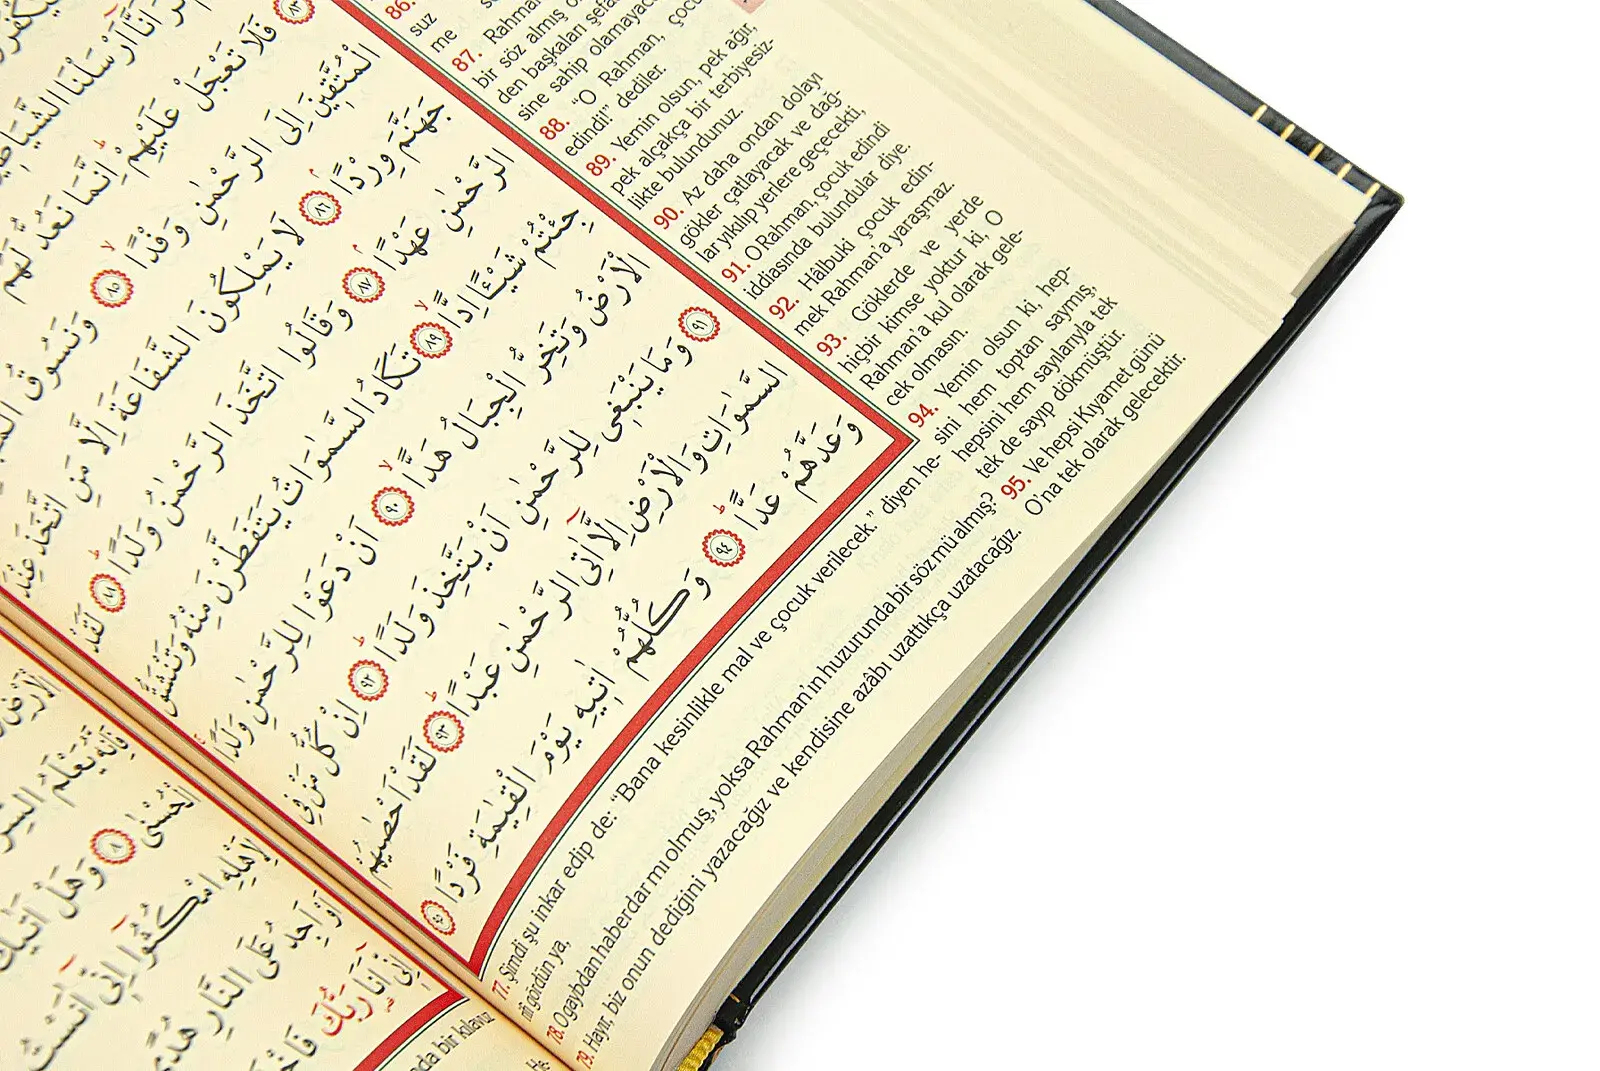 اَنَّٓا اَرْسَلْنَا
﴿٨٣﴾ فَلَا تَعْجَلْ عَلَيْهِمْ اِنَّمَا نَعُدُّ لَهُمْ
الْمُتَّقِينَ اِلَى الرَّحْمٰنِ وَفْدًا ﴿٨٥﴾ وَنَسُوقُ
جَهَنَّمَ وِرْدًا ﴿٨٦﴾ لَا يَمْلِكُونَ الشَّفَاعَةَ اِلَّا مَنِ اتَّخَذَ عِنْدَ
الرَّحْمٰنِ عَهْدًا ﴿٨٧﴾ وَقَالُوا اتَّخَذَ الرَّحْمٰنُ وَلَدًا ﴿٨٨﴾ لَقَدْ
جِئْتُمْ شَيْـًٔا اِدًّا ﴿٨٩﴾ تَكَادُ السَّمٰوَاتُ يَتَفَطَّرْنَ مِنْهُ وَتَنْشَقُّ
الْاَرْضُ وَتَخِرُّ الْجِبَالُ هَدًّا ﴿٩٠﴾ اَنْ دَعَوْا لِلرَّحْمٰنِ وَلَدًا
﴿٩١﴾ وَمَا يَنْبَغِي لِلرَّحْمٰنِ اَنْ يَتَّخِذَ وَلَدًا ﴿٩٢﴾ اِنْ كُلُّ مَنْ فِي
السَّمٰوَاتِ وَالْاَرْضِ اِلَّٓا اٰتِي الرَّحْمٰنِ عَبْدًا ﴿٩٣﴾ لَقَدْ اَحْصٰيهُمْ
وَعَدَّهُمْ عَدًّا ﴿٩٤﴾ وَكُلُّهُمْ اٰتِيهِ يَوْمَ الْقِيٰمَةِ فَرْدًا ﴿٩٥﴾
86.
suz
me
87. Rahman
bir söz almış
den başkaları
sine sahip olamayacak
88. "O Rahman, çocuk
edindi!" dediler.
89. Yemin olsun, pek ağır,
pek alçakça bir terbiyesiz-
likte bulundunuz.
90. Az daha ondan dolayı
gökler çatlayacak ve dağ-
lar yıkılıp yerlere geçecekti,
91. O Rahman, çocuk edindi
iddiasında bulundular diye.
92. Hâlbuki çocuk edin-
mek Rahman'a yaraşmaz.
93. Göklerde ve yerde
hiçbir kimse yoktur ki, O
Rahman'a kul olarak gele-
cek olmasın.
94. Yemin olsun ki, hep-
sini hem toptan saymış,
hepsini hem sayılarıyla tek
tek de sayıp dökmüştür.
95. Ve hepsi Kıyamet günü
O'na tek olarak gelecektir.
77. Şimdi şu inkar edip de: "Bana kesinlikle mal ve çocuk verilecek." diyen he-
rifi gördün ya,
78. O gaybdan haberdar mı olmuş, yoksa Rahman'ın huzurunda bir söz mü almış?
79. Hayır, biz onun dediğini yazacağız ve kendisine azâbı uzattıkça uzatacağız.
يَعْلَمُ السِّرَّ
الْحُسْنٰى ﴿٨﴾ وَهَلْ اَتٰيكَ
لِاَهْلِهِ امْكُثُٓوا اِنِّٓي اٰنَسْتُ
اَوْ اَجِدُ عَلَى النَّارِ هُدًى
اِنِّٓي اَنَا رَبُّكَ
bir kılavuz